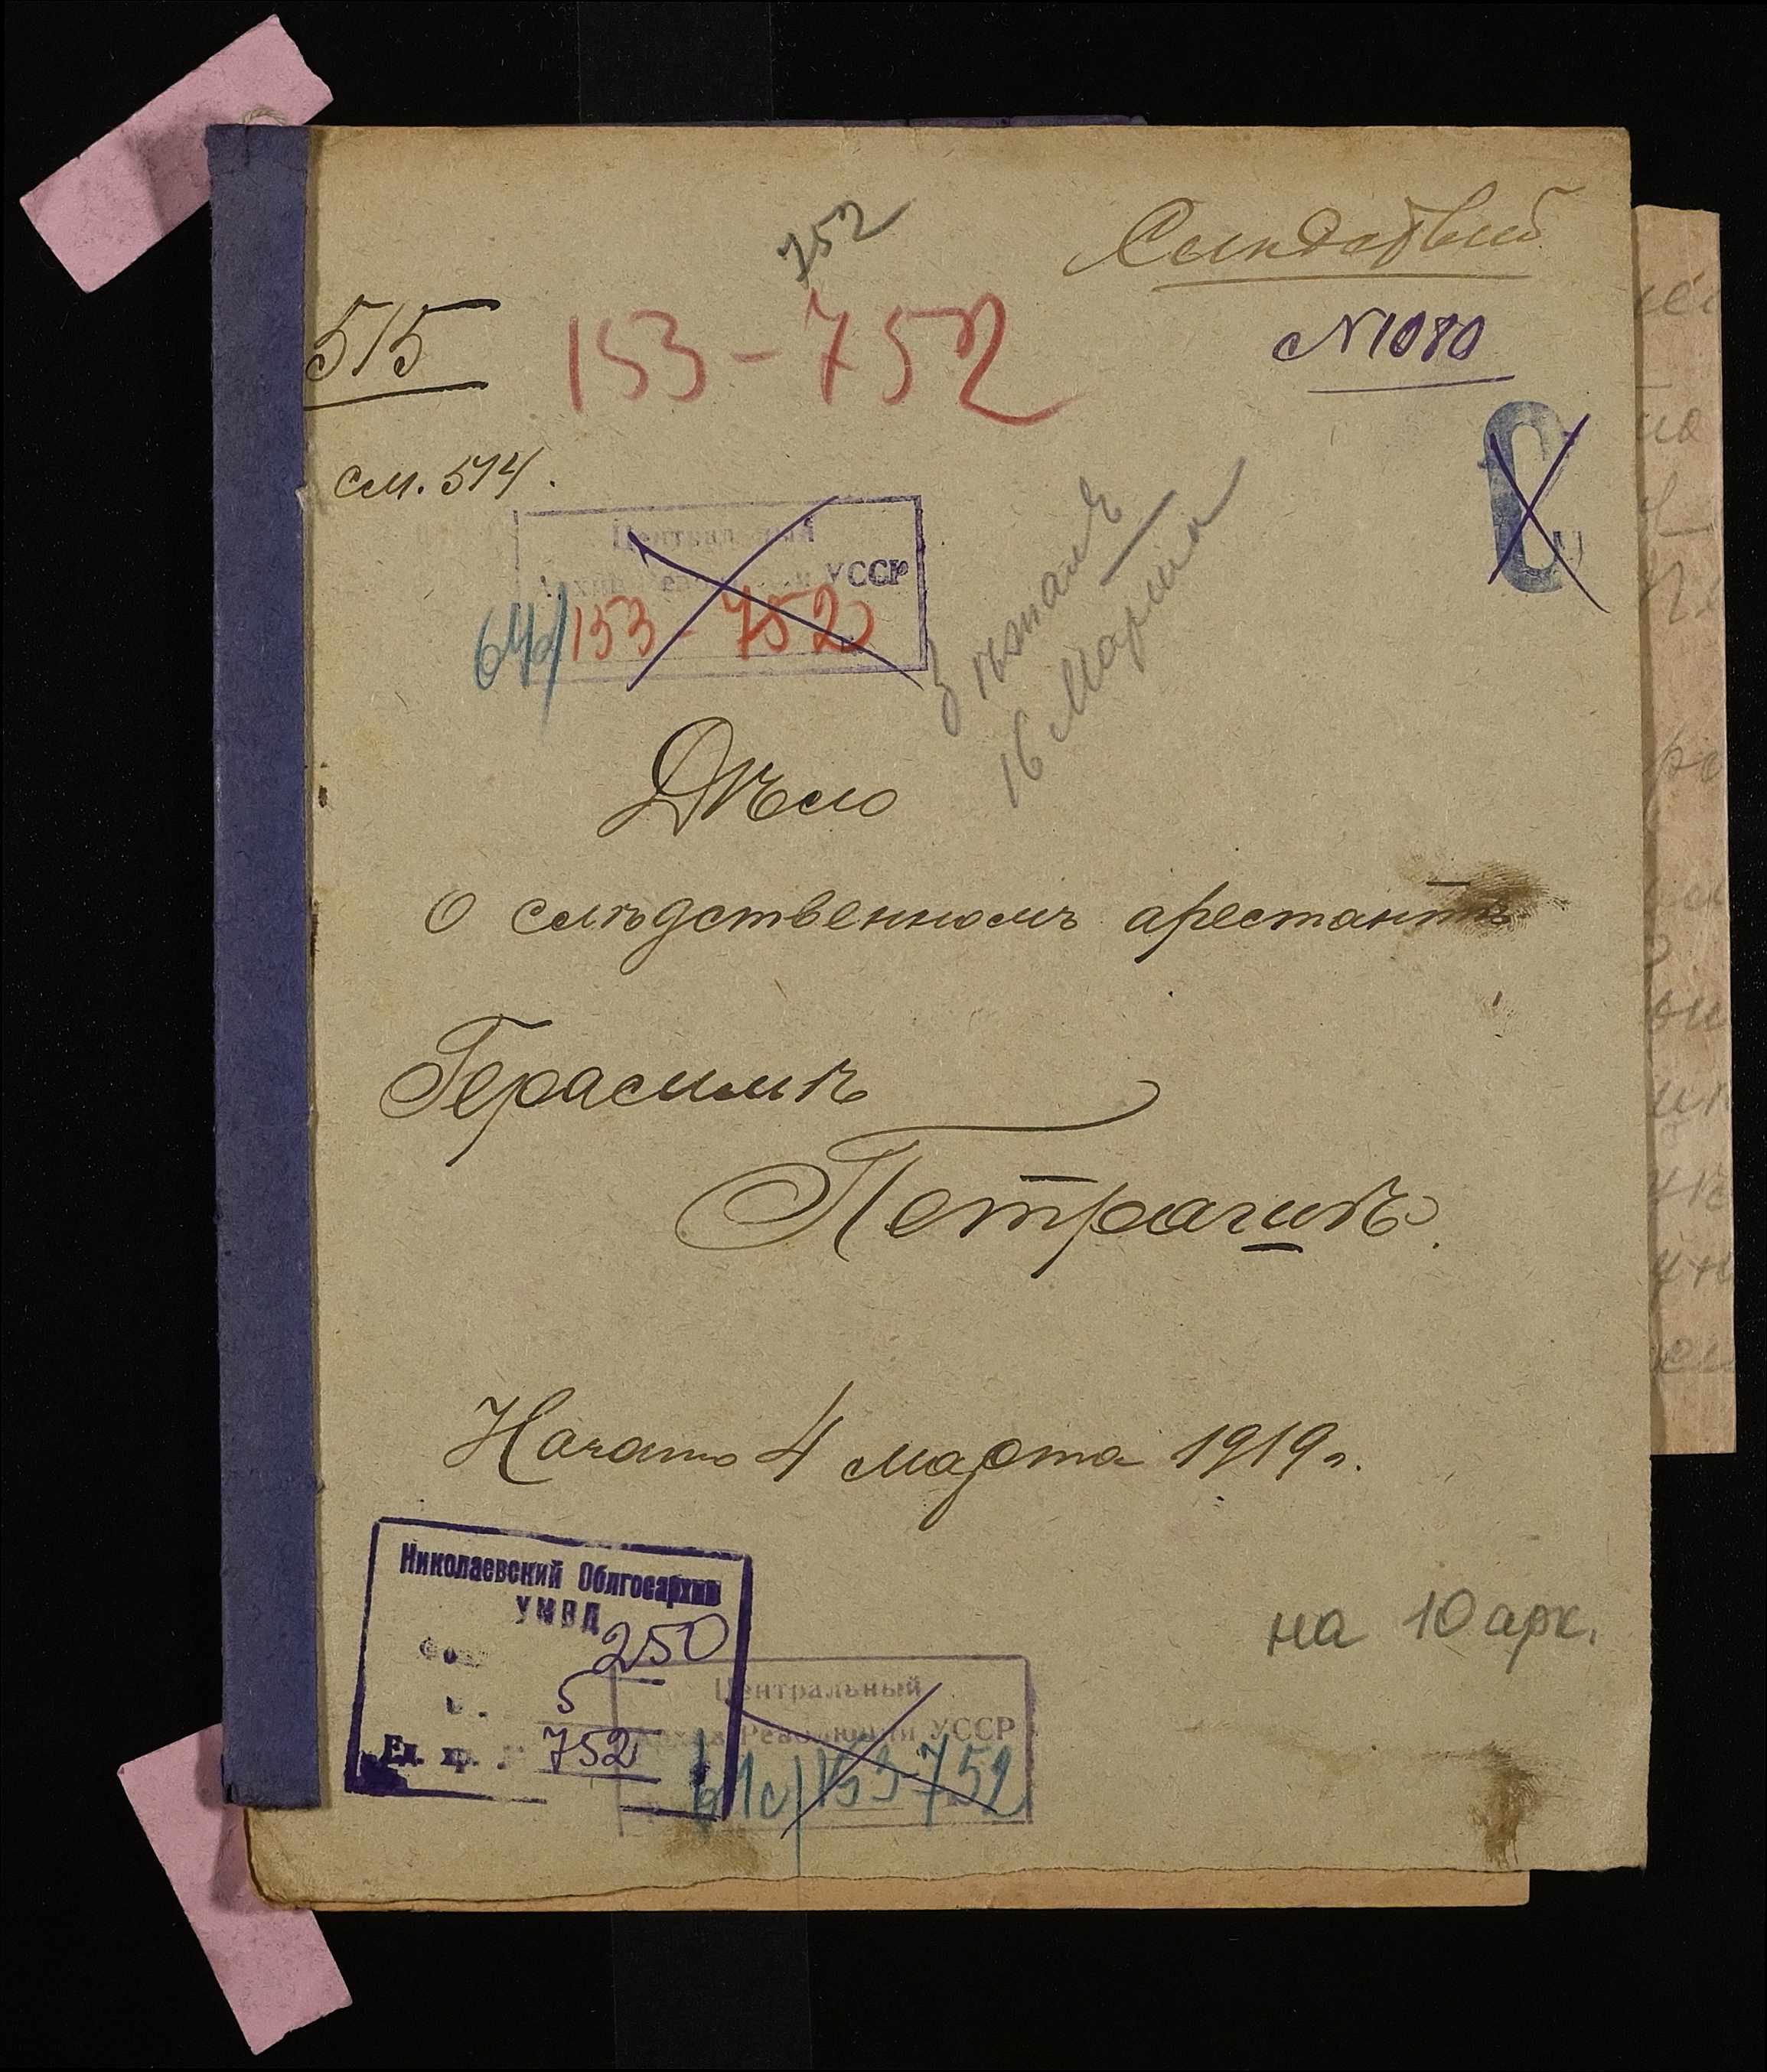 752
515
153-752
№1080
см. 574.
Центральный
Архив Революции УССР
153-752
16 Марта
Дѣло
О слѣдственномъ арестантѣ
Герасимѣ
Петрагинѣ.
Начато 4 марта 1919 г.
Николаевский Облгосархив
УМВД
Фонд 250
5
Ед. хр. 752
Центральный
Архив Революции УССР
153-752
на 10 арк.